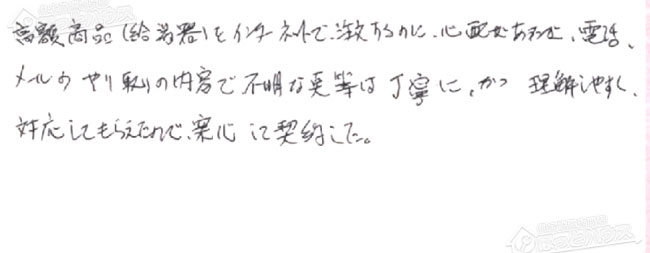 高額商品(給湯器)をインターネットで注文するのに、心配はあったが、電話、
メールのやり取りの内容で不明な点等は丁寧に、かつ理解しやすく、
対応してもらえたので、安心して契約した。